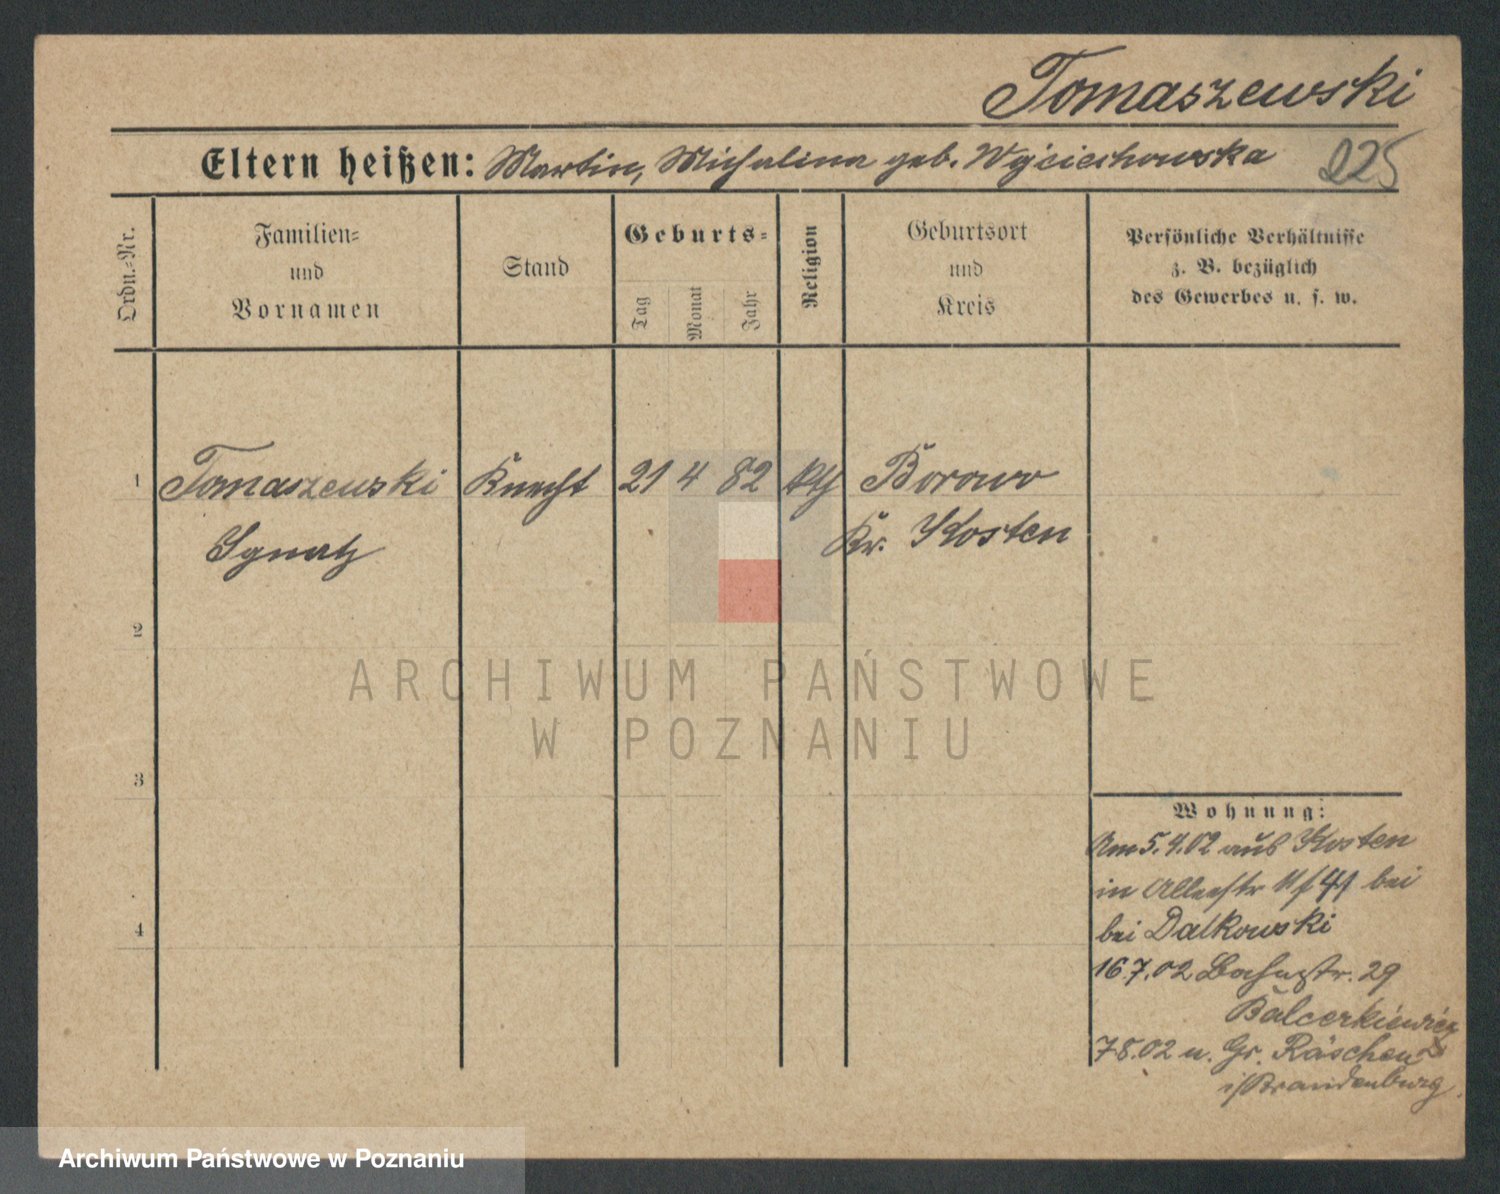 Tomaszewski
Eltern heißen: Martin, Michalina geb. Wojciechowska 225
Ordn.-Nr.
Familien-
und
Vornamen
Stand
Geburts-
Tag
Monat
Jahr
Religion
Geburtsort
und
Kreis
Persönliche Verhältnisse
z. B. bezüglich
des Gewerbes u. s. w.
1 Tomaszewski Knecht 21 4 82 kth Borowo
Ignatz Kr. Kosten
2
3
4
Wohnung:
Am 5.4.02 aus Kosten
in Alleestr 41 bei
bei Dalkowski
16.7.02 Bahnstr. 29
Balcerkiewicz
7.8.02 n. Gr. Räschen
i/Brandenburg.
ARCHIWUM PAŃSTWOWE
W POZNANIU
Archiwum Państwowe w Poznaniu